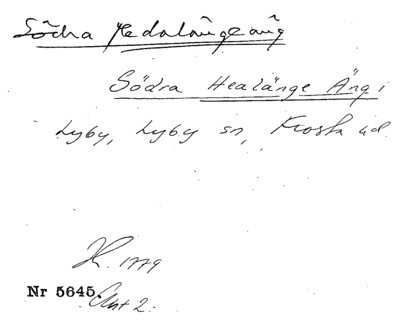 Södra Hedalångeäng
Södra Healänge Äng,
Lyby, Lyby sn, Frosta hd.
1779
Nr 5645. Akt 2.